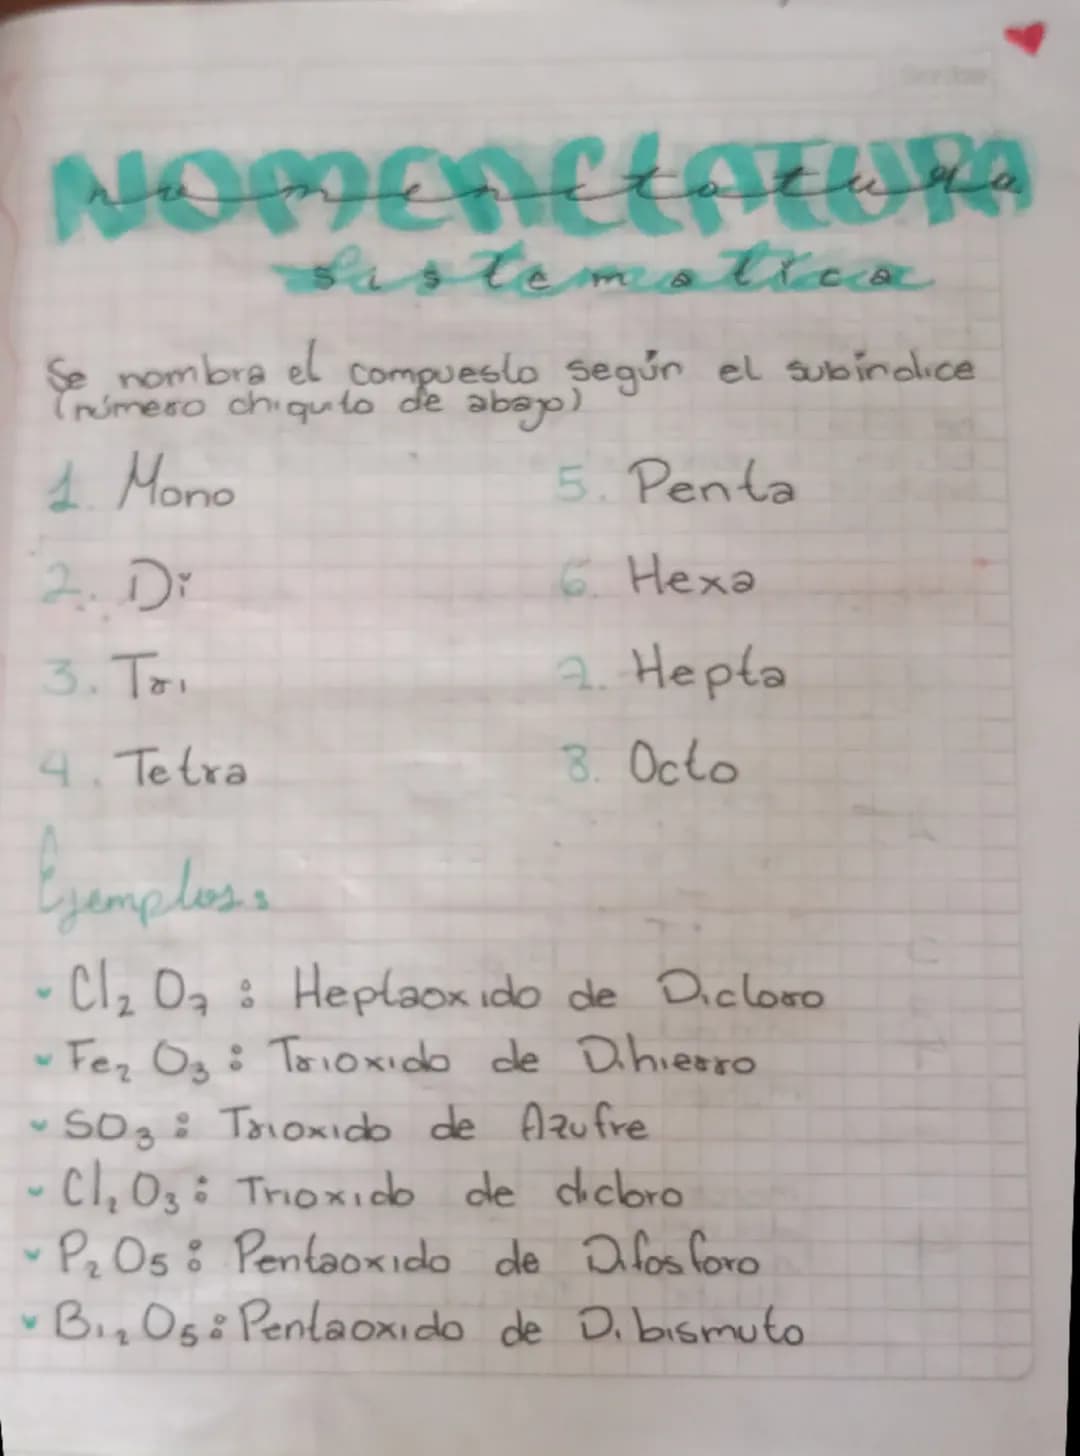 NOMENCLATURA
nomenclatura
sistematica
Se nombra el compuesto según el subíndice
(número chiquito de abajo)
1. Mono
2. Di
3. Tri
4. Tetra
5. Penta
6. Hexa
7. Hepta
8. Octo
Ejemplos:
Cl₂ O₇ : Heptaoxido de Dicloro
Fe₂ O₃ : Trioxido de Dihierro
SO₃ : Trioxido de Azufre
Cl₂ O₃ : Trioxido de dicloro
P₂ O₅ : Pentaoxido de Difosforo
Bi₂ O₅ : Pentaoxido de Dibismuto